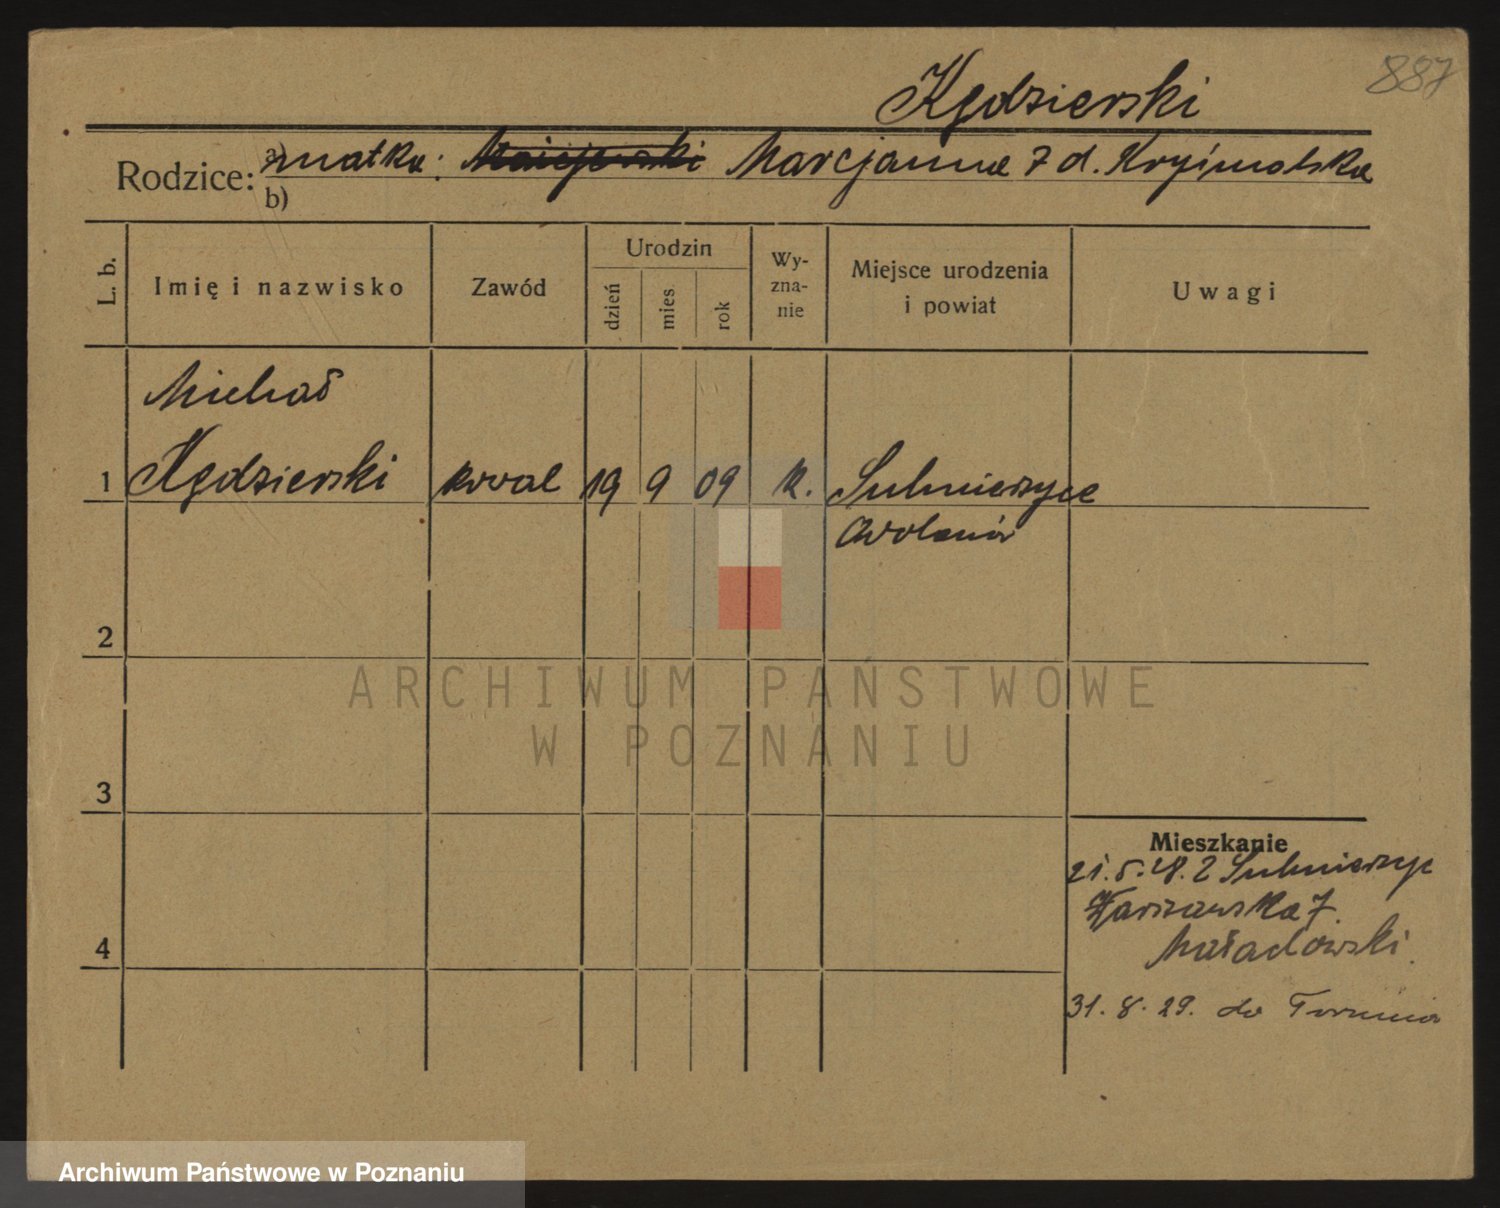 887
Kędzierski
Rodzice: a) matka: Maciejewski Marcjanna z d.
b)
L. b.
Imię i nazwisko
Zawód
Urodzin
dzień
mies
rok
Wy-
zna-
nie
Miejsce urodzenia
i powiat
Uwagi
Michał
1 Kędzierski kowal 19 9 09 k. Sulmierzyce
Odolanów
2
ARCHIWUM PAŃSTWOWE
W POZNANIU
3
Mieszkanie
21.5.28. z Sulmierzyc
Warszawska 7.
4
31.8.29. do Torunia
Archiwum Państwowe w Poznaniu